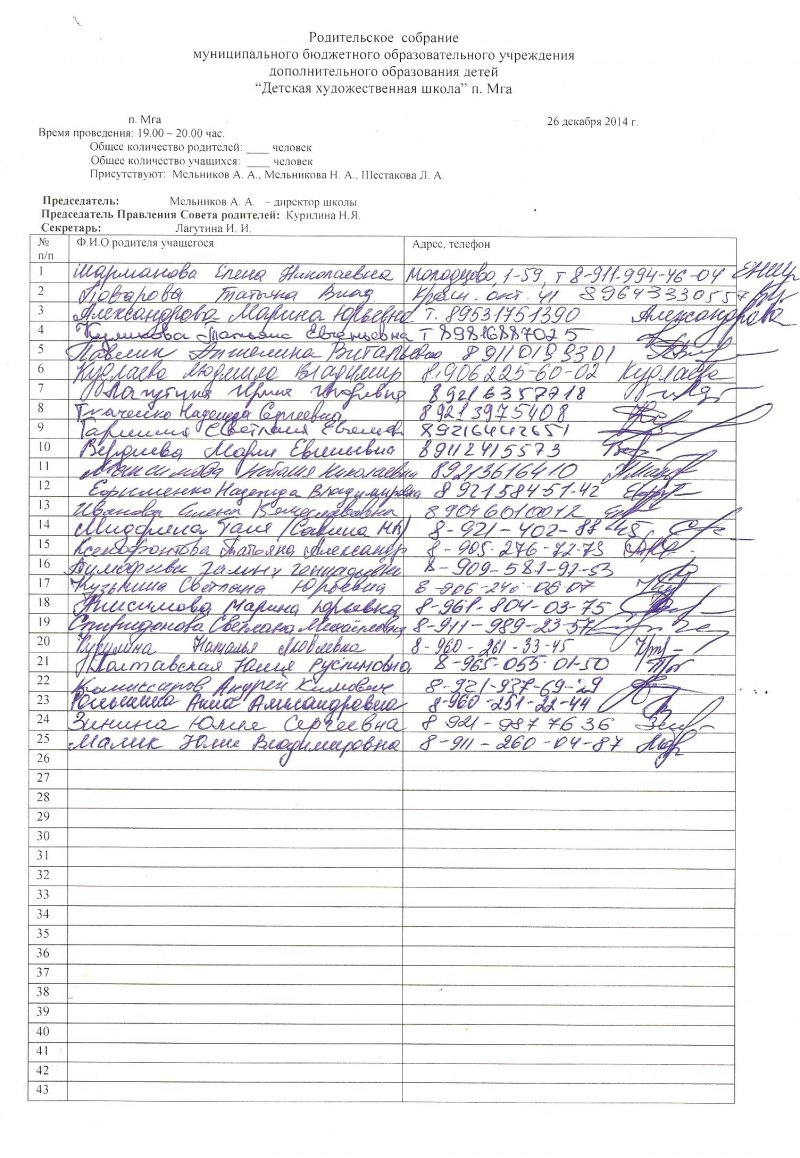 Родительское собрание
муниципального бюджетного образовательного учреждения
дополнительного образования детей
“Детская художественная школа” п. Мга
п. Мга 26 декабря 2014 г.
Время проведения: 19.00 – 20.00 час.
Общее количество родителей: ____ человек
Общее количество учащихся: ____ человек
Присутствуют: Мельников А. А., Мельникова Н. А., Шестакова Л. А.
Председатель: Мельников А. А. – директор школы
Председатель Правления Совета родителей: Курилина Н.Я.
Секретарь: Лагутина И. И.
№ п/п Ф.И.О родителя учащегося Адрес, телефон
1 Шарманова Елена Николаевна Молодцово, 1-59, т 8-911-994-46-04
2 Поварова Татьяна 41
3 Александрова Марина Юрьевна т. 89531751390 Александрова
4 Куликова Татьяна Евгеньевна т 89816887025
5 Павлик Ангелина
6 Кудлаева Людмила Владимир 8-906225-60-02 Кудлаева
7 Лагутина 89216357718
8 Ткаченко Надежда Сергеевна 89213975408
9 Светлана 89216442651
10 Мария Евгеньевна 89112415573
11 Максимова Наталия Николаевна 89213616410
12 Ефрименко Надежда Владимировна 8 921 584-51-42
13 Иванова Елена 89046010012
14 Галя (Савина Н.А) 8-921-402-88
15 Ксенофонтова Татьяна Александр 8-905-276-72-73
16 8-909-581-91-53
17 Кузьмина Светлана Юрьевна
18 Анисимова Марина Юрьевна 8-961-804-03-75
19 Спиридонова Светлана Михайловна 8-911-989-23-57
20 Курилина Наталья Яковлевна 8-960-261-33-45
21 Полтавская Юлия Руслановна 8-965-055-01-50
22 Комиссаров Андрей Климович 8-921-937-69-29
23 Анна Александровна 8-960-251-22-44
24 Зинина Юлие Сергеевна 8 921-987 76 36
25 Малик Юлие Владимировна 8-911-260-04-87
26
27
28
29
30
31
32
33
34
35
36
37
38
39
40
41
42
43